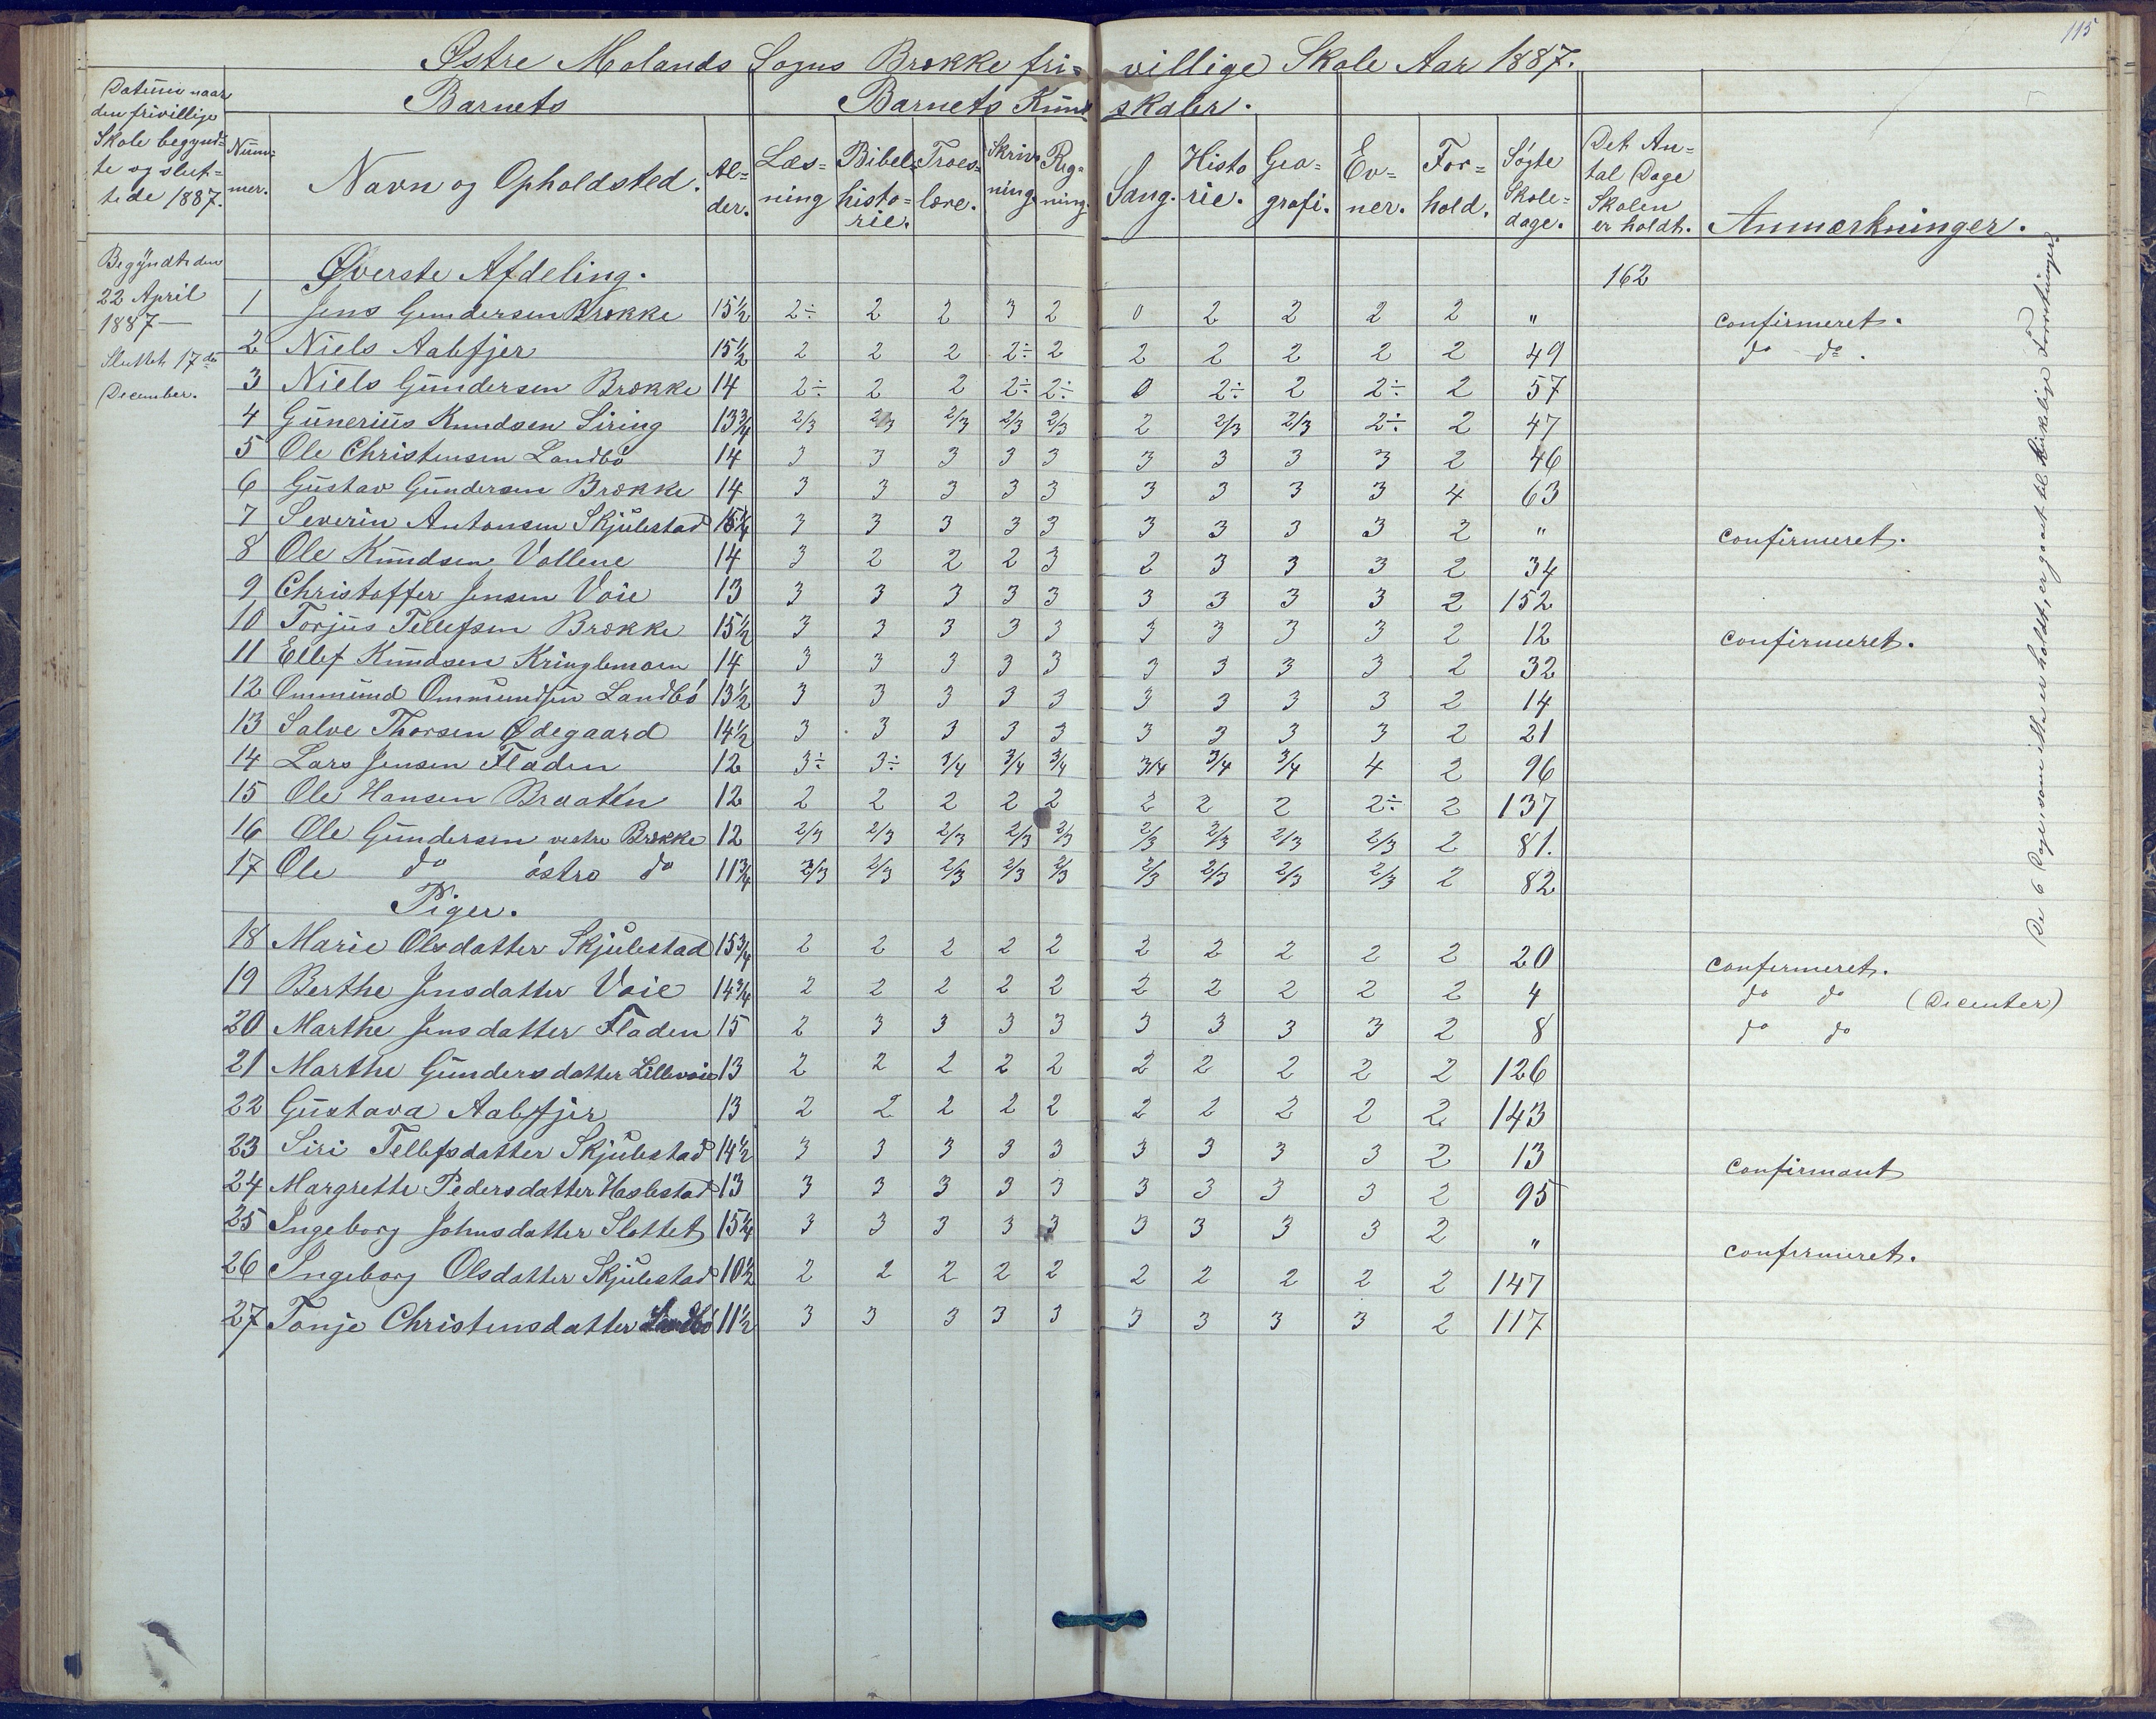 115
Østre Molands Sogns Brække fri= villige Skole Aar 1887.
Datum naar den frivillige Skole begynd= te og slut= tede 1887.
Barnets
Barnets Kund skaber.
Num= mer. Navn og Opholdsted. Al= der. Læs= ning Bibel= histo= rie. Troes= lære. Skriv ning. Reg= ning. Sang. Histo rie. Geo= grafi. Ev= ner. For= hold. Søgte Skole= dage. Det An= tal Dage Skolen er holdt. Anmærkninger.
Begyndt den 22 April 1887—
Sluttet 17de December.
Øverste Afdeling. 162
1 Jens Gundersen Brække 15½ 2÷ 2 2 3 2 0 2 2 2 2 " confirmeret.
2 Niels Aalefjer 15½ 2 2 2 2÷ 2 2 2 2 2 2 49 do do.
3 Niels Gundersen Brække 14 2÷ 2 2 2÷ 2÷ 0 2÷ 2 2÷ 2 57
4 Gunerius Knudsen Siring 13¾ 2/3 2/3 2/3 2/3 2/3 2 2/3 2/3 2÷ 2 47
5 Ole Christensen Landbö 14 3 3 3 3 3 3 3 3 3 2 46
6 Gustav Gundersen Brække 14 3 3 3 3 3 3 3 3 3 4 63
7 Severin Antonsen Skjulestad 15¼ 3 3 3 3 3 3 3 3 3 2 " confirmeret.
8 Ole Knudsen Vollene 14 3 2 2 2 3 2 3 3 3 2 34
9 Christoffer Jensen Voie 13 3 3 3 3 3 3 3 3 3 2 152
10 Torjus Tellefsen Brække 15½ 3 3 3 3 3 3 3 3 3 2 12 confirmeret.
11 Ellef Knudsen Kringlemoen 14 3 3 3 3 3 3 3 3 3 2 32
12 Ommund Ommundsen Landbö 13½ 3 3 3 3 3 3 3 3 3 2 14
13 Salve Thorsen Ødegaard 14½ 3 3 3 3 3 3 3 3 3 2 21
14 Lars Jensen Fladen 12 3÷ 3÷ 3/4 3/4 3/4 3/4 3/4 3/4 4 2 96
15 Ole Hansen Braaten 12 2 2 2 2 2 2 2 2 2÷ 2 137
16 Ole Gundersen vestre Brække 12 2/3 2/3 2/3 2/3 2/3 2/3 2/3 2/3 2/3 2 81.
17 Ole do östre do 11¾ 2/3 2/3 2/3 2/3 2/3 2/3 2/3 2/3 2/3 2 82
Piger.
18 Marie Olsdatter Skjulestad 15¾ 2 2 2 2 2 2 2 2 2 2 20 confirmeret.
19 Berthe Jensdatter Voie 14¾ 2 2 2 2 2 2 2 2 2 2 4 do do (Decenter)
20 Marthe Jensdatter Fladen 15 2 3 3 3 3 3 3 3 3 2 8 do do
21 Marthe Gundersdatter Lillevoie 13 2 2 2 2 2 2 2 2 2 2 126
22 Gustava Aalefjer 13 2 2 2 2 2 2 2 2 2 2 143
23 Siri Tellefsdatter Skjulestad 14½ 3 3 3 3 3 3 3 3 3 2 13 confirmant
24 Margrethe Pedersdatter Haslestad 13 3 3 3 3 3 3 3 3 3 2 95
25 Ingeborg Johnsdatter Slottet 15¼ 3 3 3 3 3 3 3 3 3 2 " confirmeret.
26 Ingeborg Olsdatter Skjulestad 10½ 2 2 2 2 2 2 2 2 2 2 147
27 Tonje Christensdatter Landbö 11½ 3 3 3 3 3 3 3 3 3 2 117
De 6 Dage som ikke er holdt, er gaaet til kirkelige Forretninger.